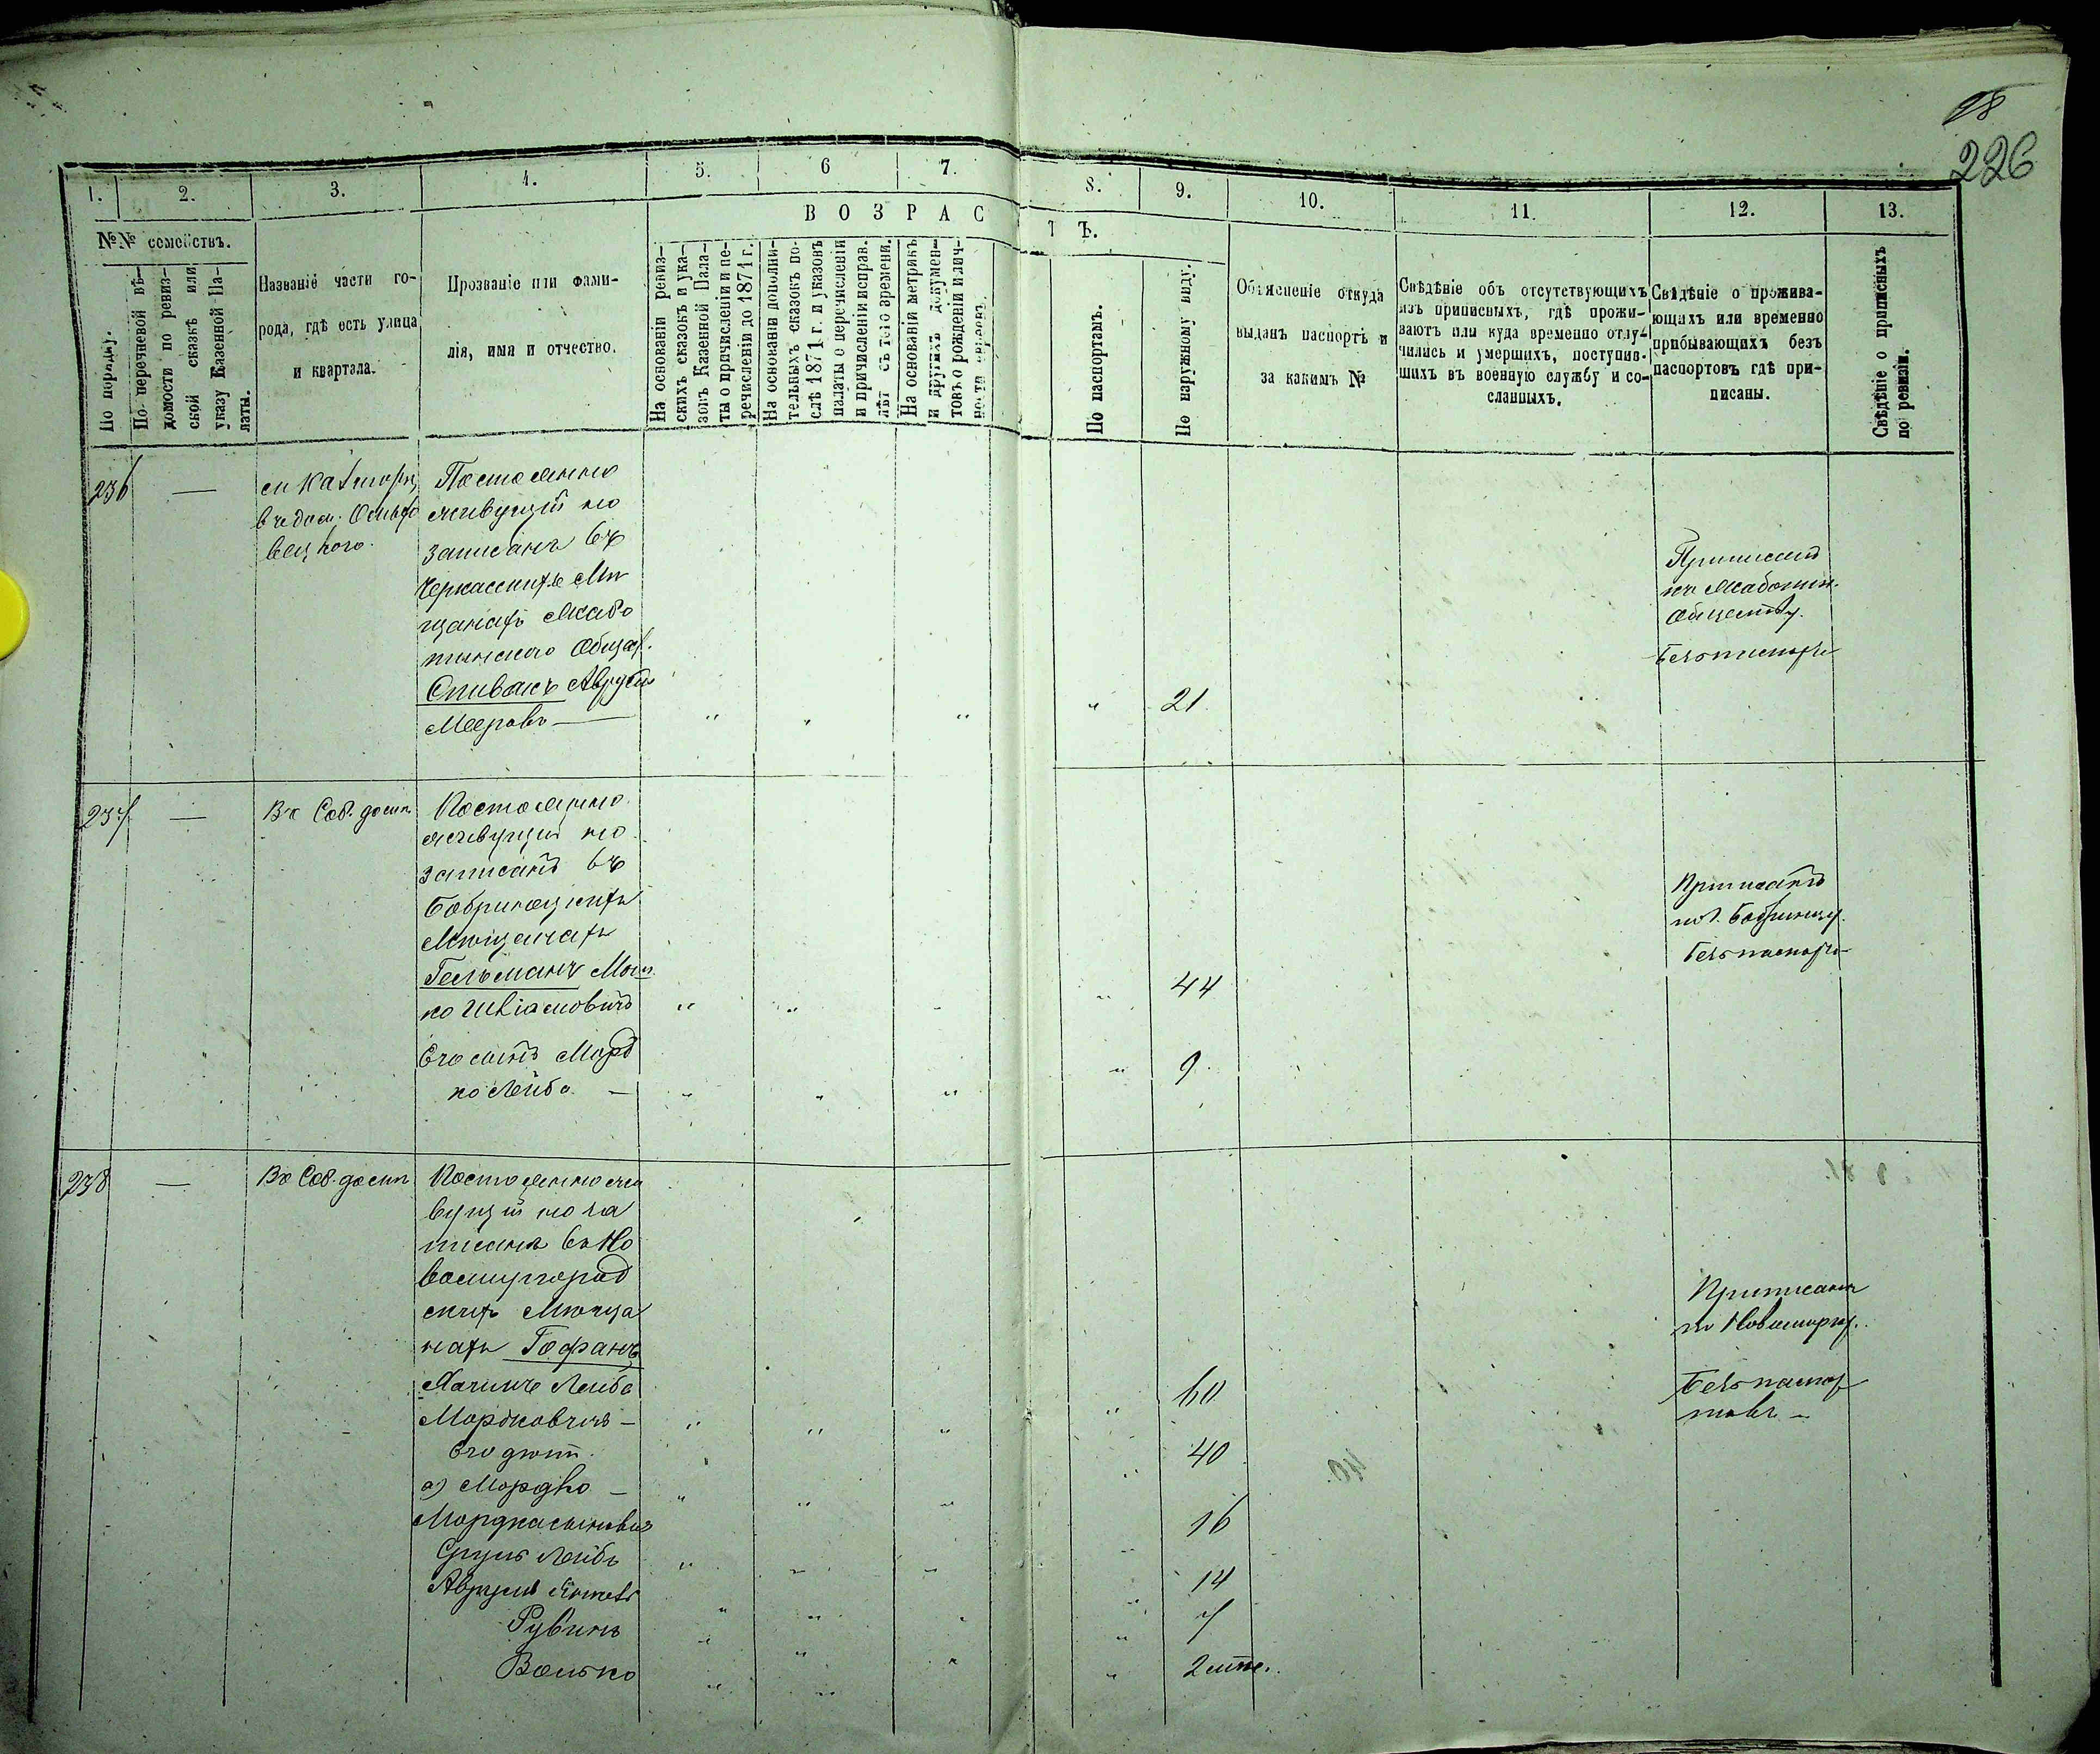 226
1.
2.
3.
4.
5.
6
7.
8.
9.
10.
11.
12.
13.
№№ семействъ.
По порядку.
По перечневой вѣ-
домости по ревиз-
ской сказкѣ или
указу Казенной Па-
латы.
Названіе части го-
рода, гдѣ есть улица
и квартала.
Прозваніе или фами-
лія, имя и отчество.
ВОЗРАС
ТЪ.
На основаніи ревиз-
скихъ сказокъ и ука-
зовъ Казенной Пала-
ты о причисленіи и пе-
речисленіи до 1871 г.
На основаніи дополни-
тельныхъ сказокъ по-
слѣ 1871 г. и указовъ
палаты о перечисленіи
и причисленіи исправ.
лѣт съ того времени.
На основаніи метрикъ
и другихъ докумен-
товъ о рожденіи и лич-
ности евреевъ.
По паспортамъ.
По наружному виду.
Объясненіе откуда
выданъ паспортъ и
за какимъ №
Свѣдѣніе объ отсутствующихъ
изъ приписныхъ, гдѣ прожи-
ваютъ или куда временно отлу-
чились и умершихъ, поступив-
шихъ въ военную службу и со-
сланныхъ.
Свѣдѣніе о прожива-
ющихъ или временно
прибывающихъ безъ
паспортовъ гдѣ при-
писаны.
Свѣдѣніе о приписныхъ
по ревизіи.
236
—
Постоянно
живущій но
записанъ въ
Черкасскихъ Мѣ
щанахъ Жабо
тинскаго Общес.
Спивакъ Аврумъ
Мееровъ —
21.
Приписанъ
къ Жаботин.
Обществу.
237
—
Въ Соб. домѣ
Постоянно
живущій но
записанъ въ
Бобринецкихъ
Мѣщанахъ
Гельманъ Мош
ко
Его сынъ Морд
ко Лейба —
44
9.
Приписанъ
Бобринцу.
238
—
Въ Соб. домѣ
Постоянно жи
вущій но за
писанъ въ Но
вомиргород
скихъ Мѣща
нахъ Гофанъ
Лейба
Мордковичъ —
Его дѣти
а) Мордко —
Мордкасыновья
Сруль Лейбъ
Аврумъ
Рувинъ
Волько
60
40
16
14
7
2
Приписанъ